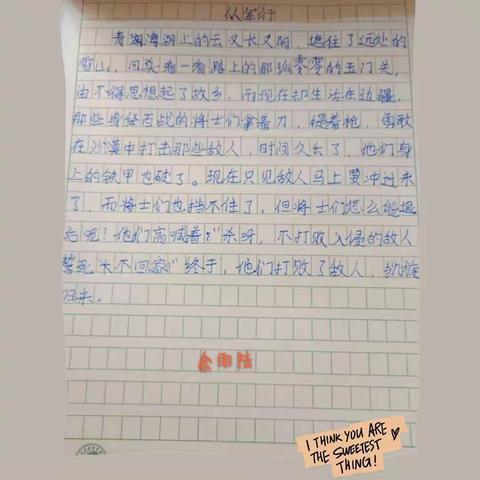 从军行
青海湖上的云又长又阴，遮住了远处的
雪山，回头看一看路上的那孤零零的玉门关，
由不得思想起了故乡，而现在却生活在边疆，
那些身经百战的将士们拿着刀，提着枪，勇敢
在沙漠中打击那些敌人，时间久长了，他们身
上的铁甲也破了。现在只见敌人马上要冲过来
了，而将士们也挡不住了，但将士们怎么能退
后呢？他们高喊着："杀呀，不打败入侵的敌人
誓死都不回家"终于，他们打败了敌人，凯旋
归来。
I THINK YOU ARE
THE SWEETEST
THING!